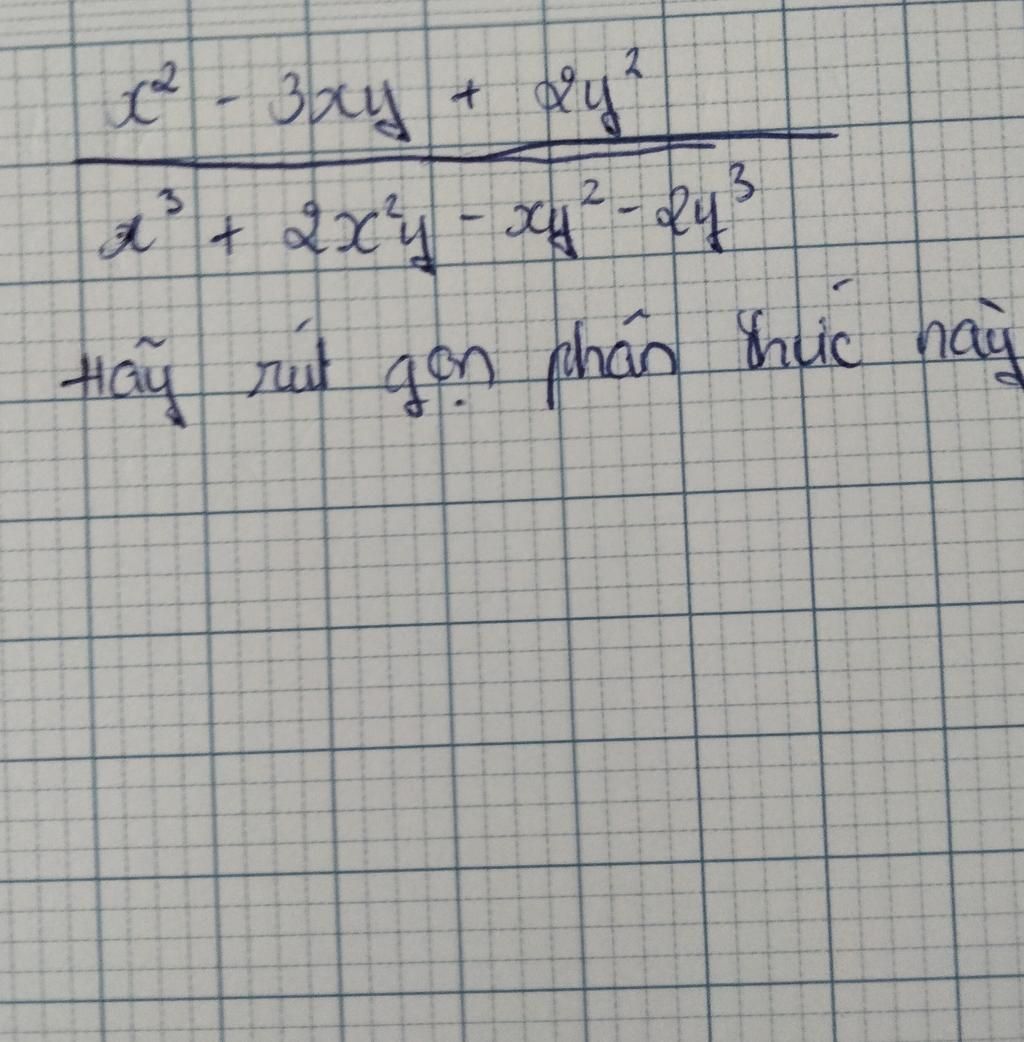 x² - 3xy + 2y²
x³ + 2x²y - xy² - 2y³
Hãy rút gọn phân thức này